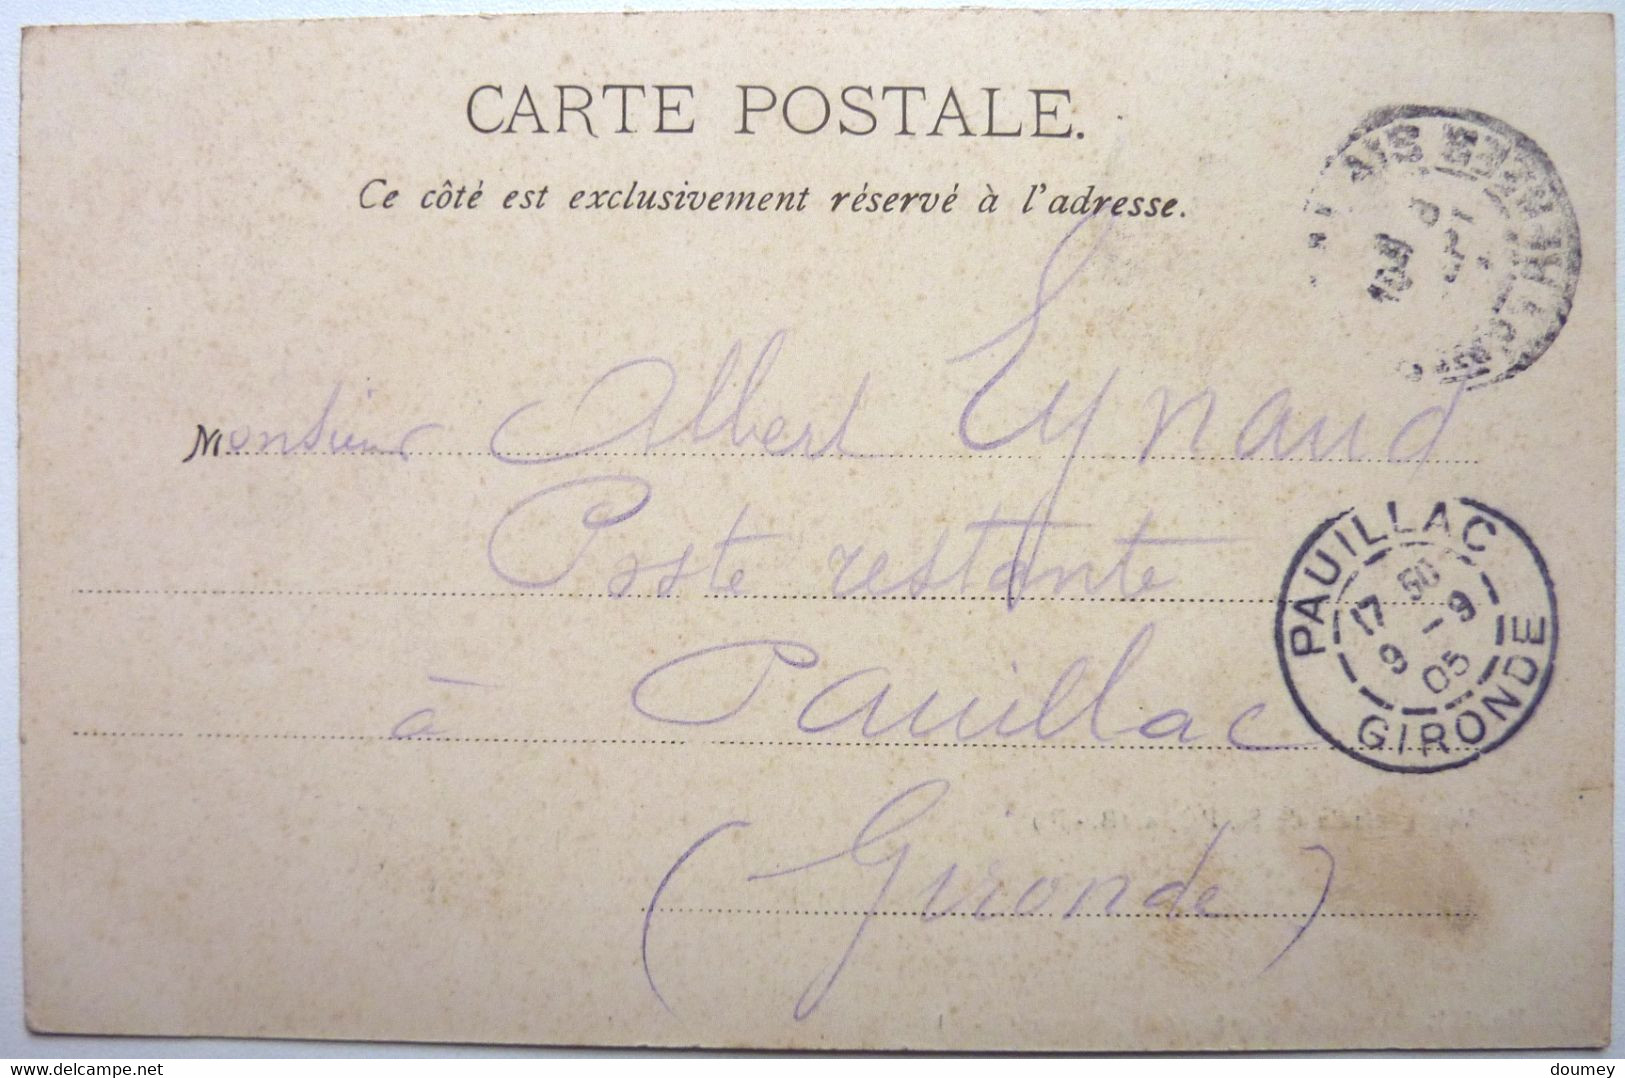 CARTE POSTALE.
Ce côté est exclusivement réservé à l'adresse.
Monsieur Albert Eynaud
Poste restante
à Pauillac
(Gironde)
PAUILLAC
17 50
9 - 9
05
GIRONDE
delcampe.net
doumey